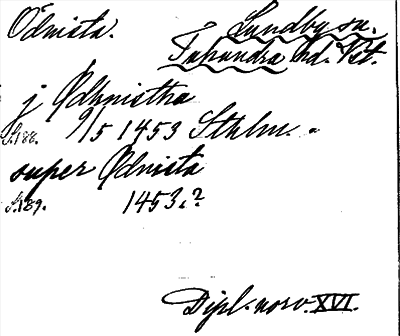 Ödnista. Lundby sn.
Tuhundra hd. Vst.
j Ødhnistha
S.188. 9/5 1453 Sthlm.
super Ødnista
S.189. 1453.?
Dipl. norv. XVI.